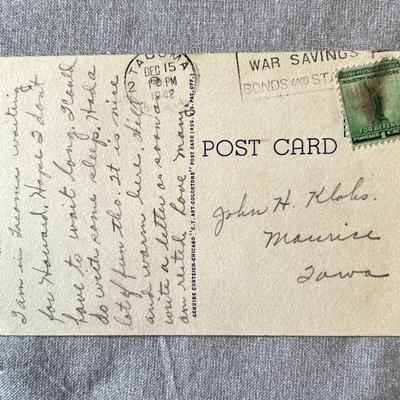 I am in Tacoma waiting
for Howard. Hope I don't
have to wait long. I could
do with some sleep. Had a
lot of fun tho. It is nice
and warm here. Will
write a letter as soon as
am rested. Love Mary.
TACOMA
DEC 15
PM
1942
WAR SAVINGS
BONDS AND STA
UNITED STATES
INDUSTRY AGRICULTURE
FOR DEFENSE
POST CARD
GENUINE CURTEICH-CHICAGO "C.T. ART-COLORTONE" POST CARD (REG. U.S. PAT. OFF.)
John H. Klohs.
Maurice
Iowa